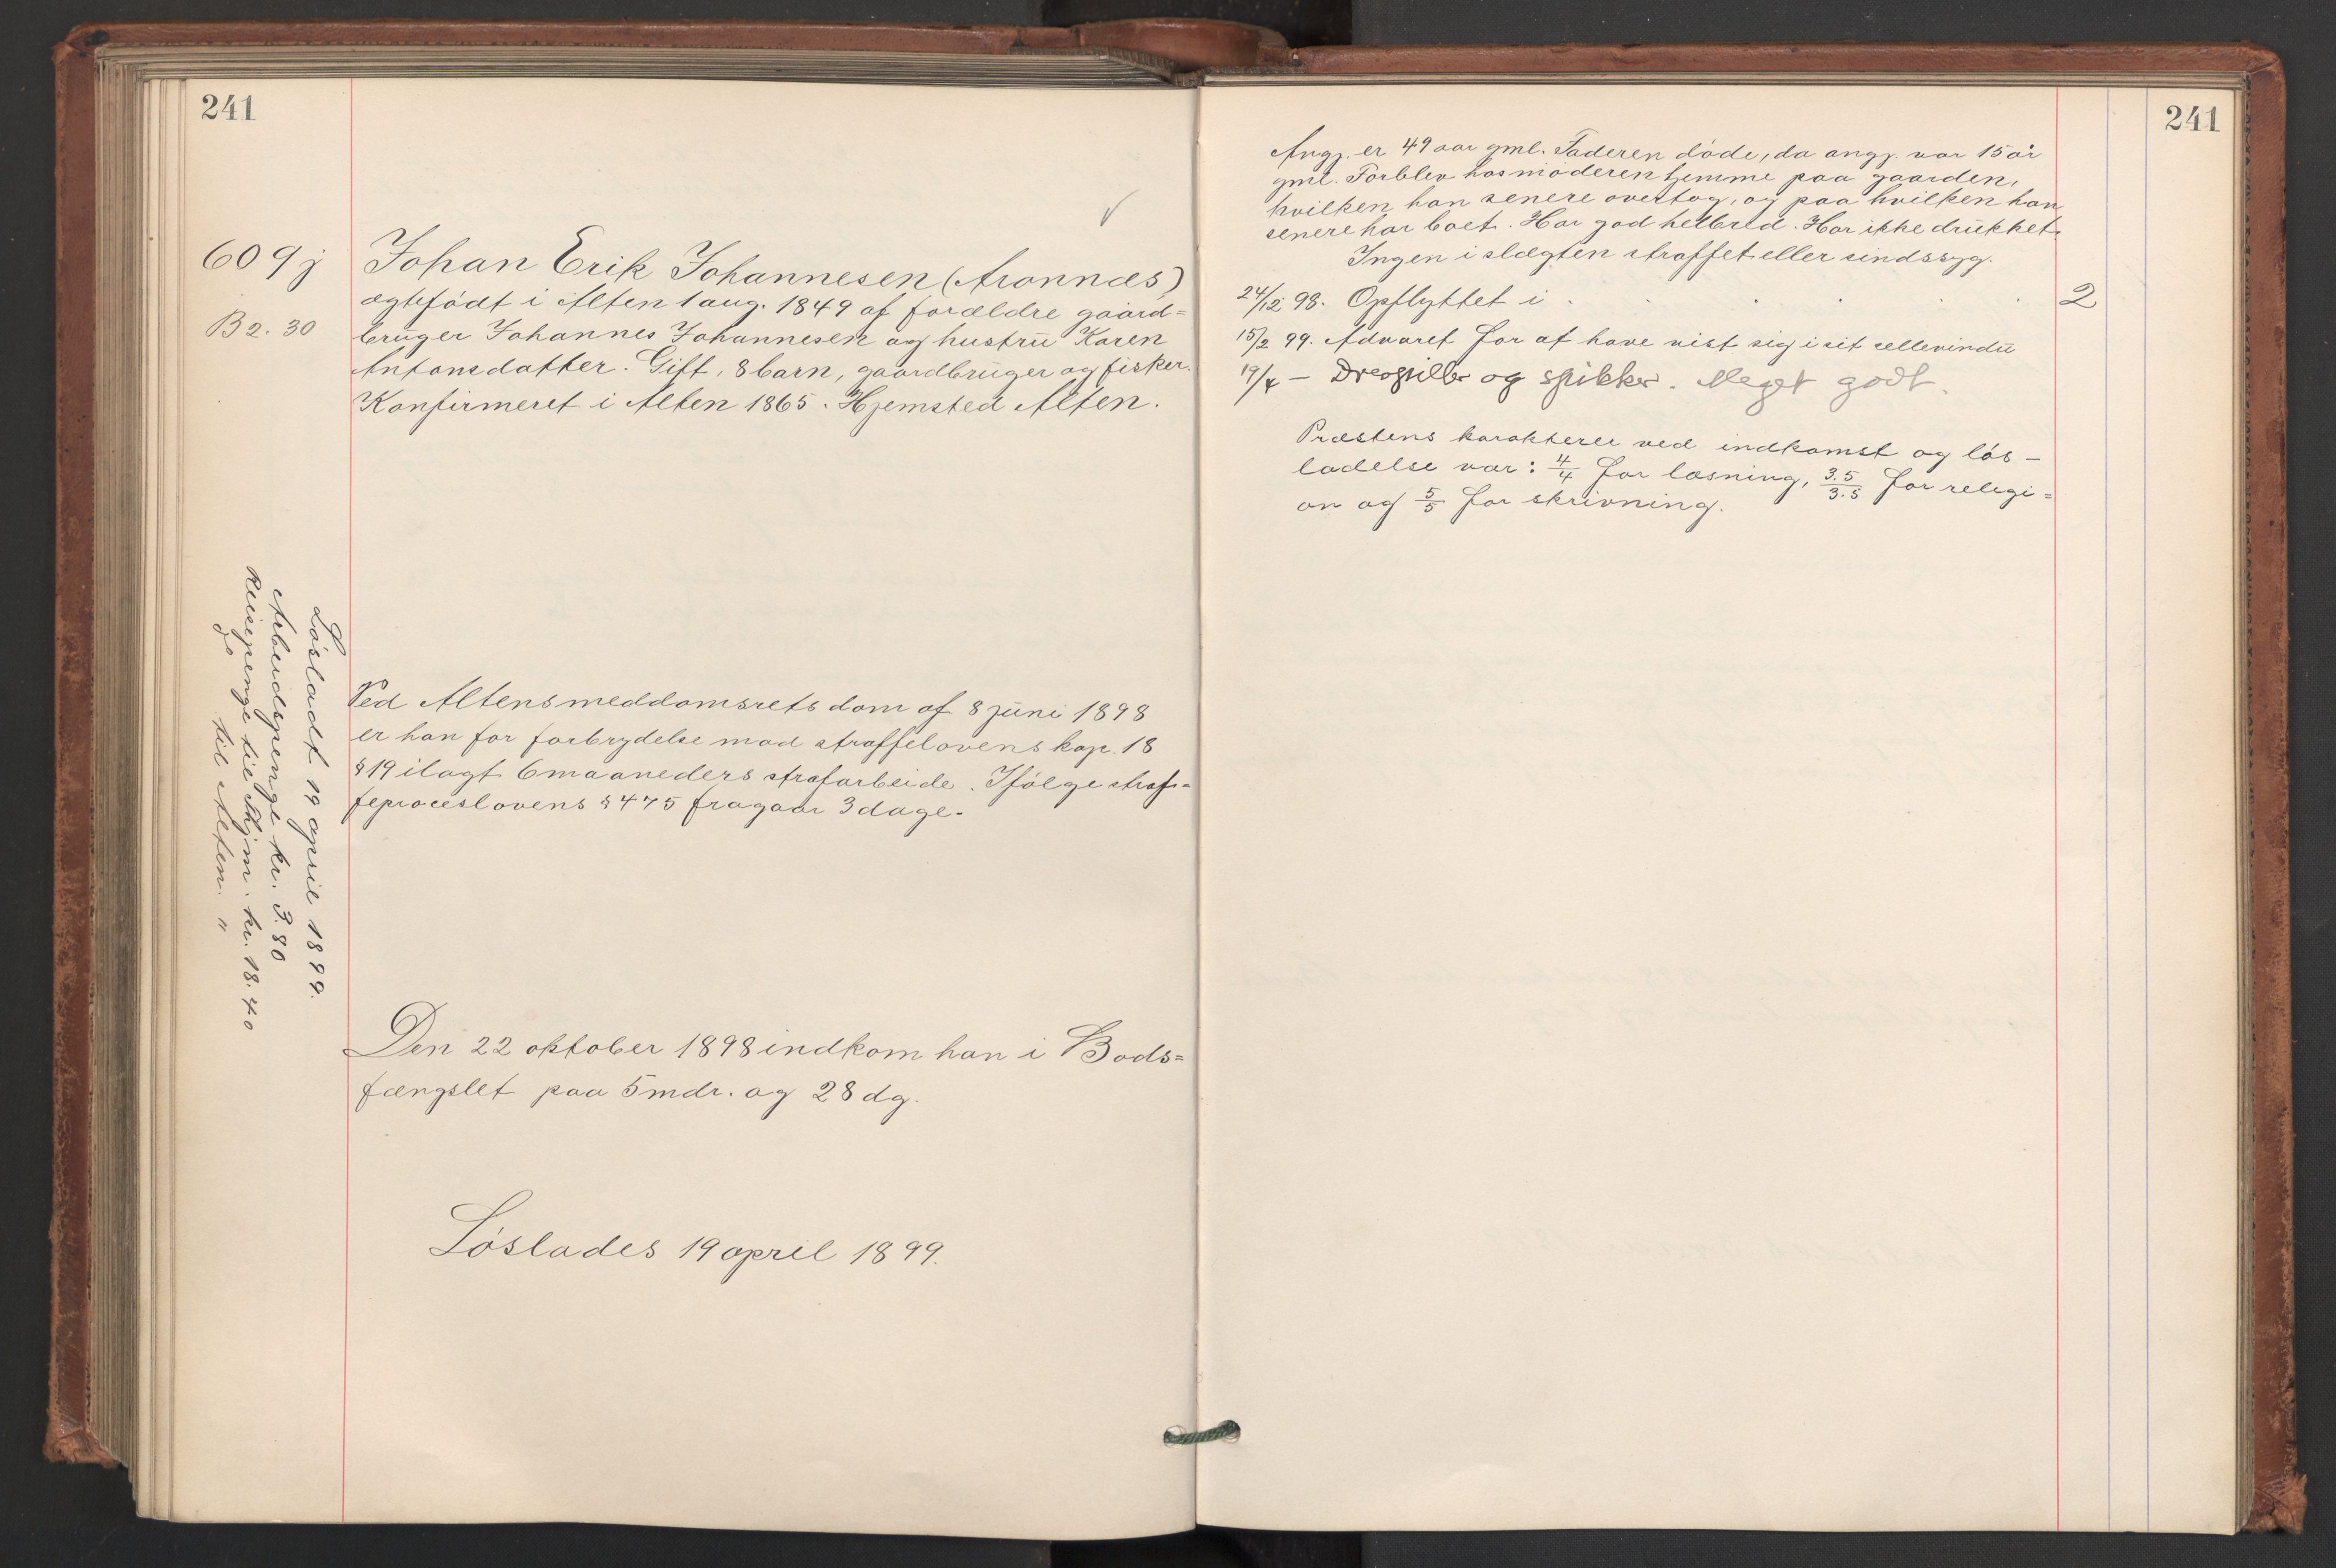 241
609 j
B 2. 30
Johan Erik Johannesen (Aronnæs)
ægtefødt i Alten 1 aug. 1849 af forældre gaard=
bruger Johannes Johannesen og hustru Karen
Antonsdatter. Gift, 8 barn, gaardbruger og fisker.
Konfirmeret i Alten 1865. Hjemsted Alten.
Løsladt 19 april 1899.
Arbeidspenge kr. 3.80
Reisepenge til Thjm. kr. 18.40
do til Alten. "
Ved Altens meddomsrets dom af 8 juni 1898
er han for forbrydelse mod straffelovens kap. 18
§ 19 ilagt 6 maaneders strafarbeide. Ifølge straf=
feproceslovens § 475 fragaar 3 dage.
Den 22 oktober 1898 indkom han i Bods=
fængslet paa 5 mdr. og 28 dg.
Løslades 19 april 1899.
241
Angj. er 49 aar gml. Faderen døde, da angj. var 15 år
gml. Forblev hos moderen hjemme paa gaarden,
hvilken han senere overtog, og paa hvilken han
senere har boet. Har god helbred. Har ikke drukket.
Ingen i slægten straffet eller sindssyg.
24/12 98. Opflyttet i . . . . . 2
15/2 99. Advaret for at have vist sig i sit cellevindu
19/4 – og spikker. Meget godt.
Præstens karakterer ved indkomst og løs-
ladelse var: 4/4 for læsning, 3.5/3.5 for religi=
on og 5/5 for skrivning.